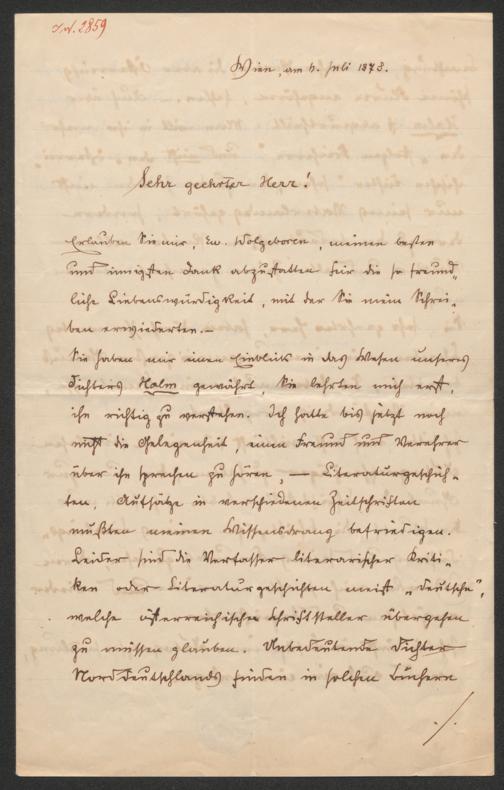 J.N. 2859
Wien, am 4. Juli 1873.
Sehr geehrter Herr!
Erlauben Sie mir, Ew. Wolgeboren, meinen besten
und innigsten Dank abzustatten für die so freund-
liche Liebenswürdigkeit, mit der Sie mein Schrei-
ben erwiederten. –
Sie haben mir einen Einblick in das Wesen unseres
Dichters Halm gewährt, Sie lehrten mich erst,
ihn richtig zu verstehen. Ich hatte bis jetzt noch
nicht die Gelegenheit, einen Freund und Verehrer
über ihn sprechen zu hören, — Literaturgeschich-
ten, Aufsätze in verschiedenen Zeitschriften
mußten meinen Wissensdrang befriedigen.
Leider sind die Verfasser literarischer Kriti-
ken oder Literaturgeschichten meist „Deutsche",
welche österreichische Schriftsteller übergehen
zu müssen glauben. Unbedeutende Dichter
Norddeutschlands finden in solchen Büchern
./.